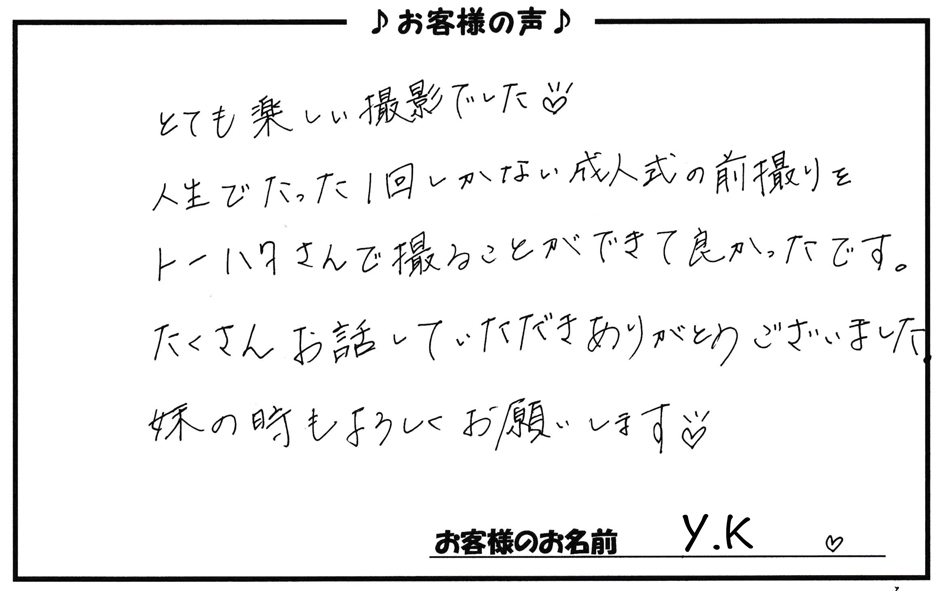 ♪お客様の声♪
とても楽しい撮影でした♡
人生でたった1回しかない成人式の前撮りを
トーハタさんで撮ることができて良かったです。
たくさんお話していただきありがとうございました。
妹の時もよろしくお願いします♡
お客様のお名前 Y.K ♡